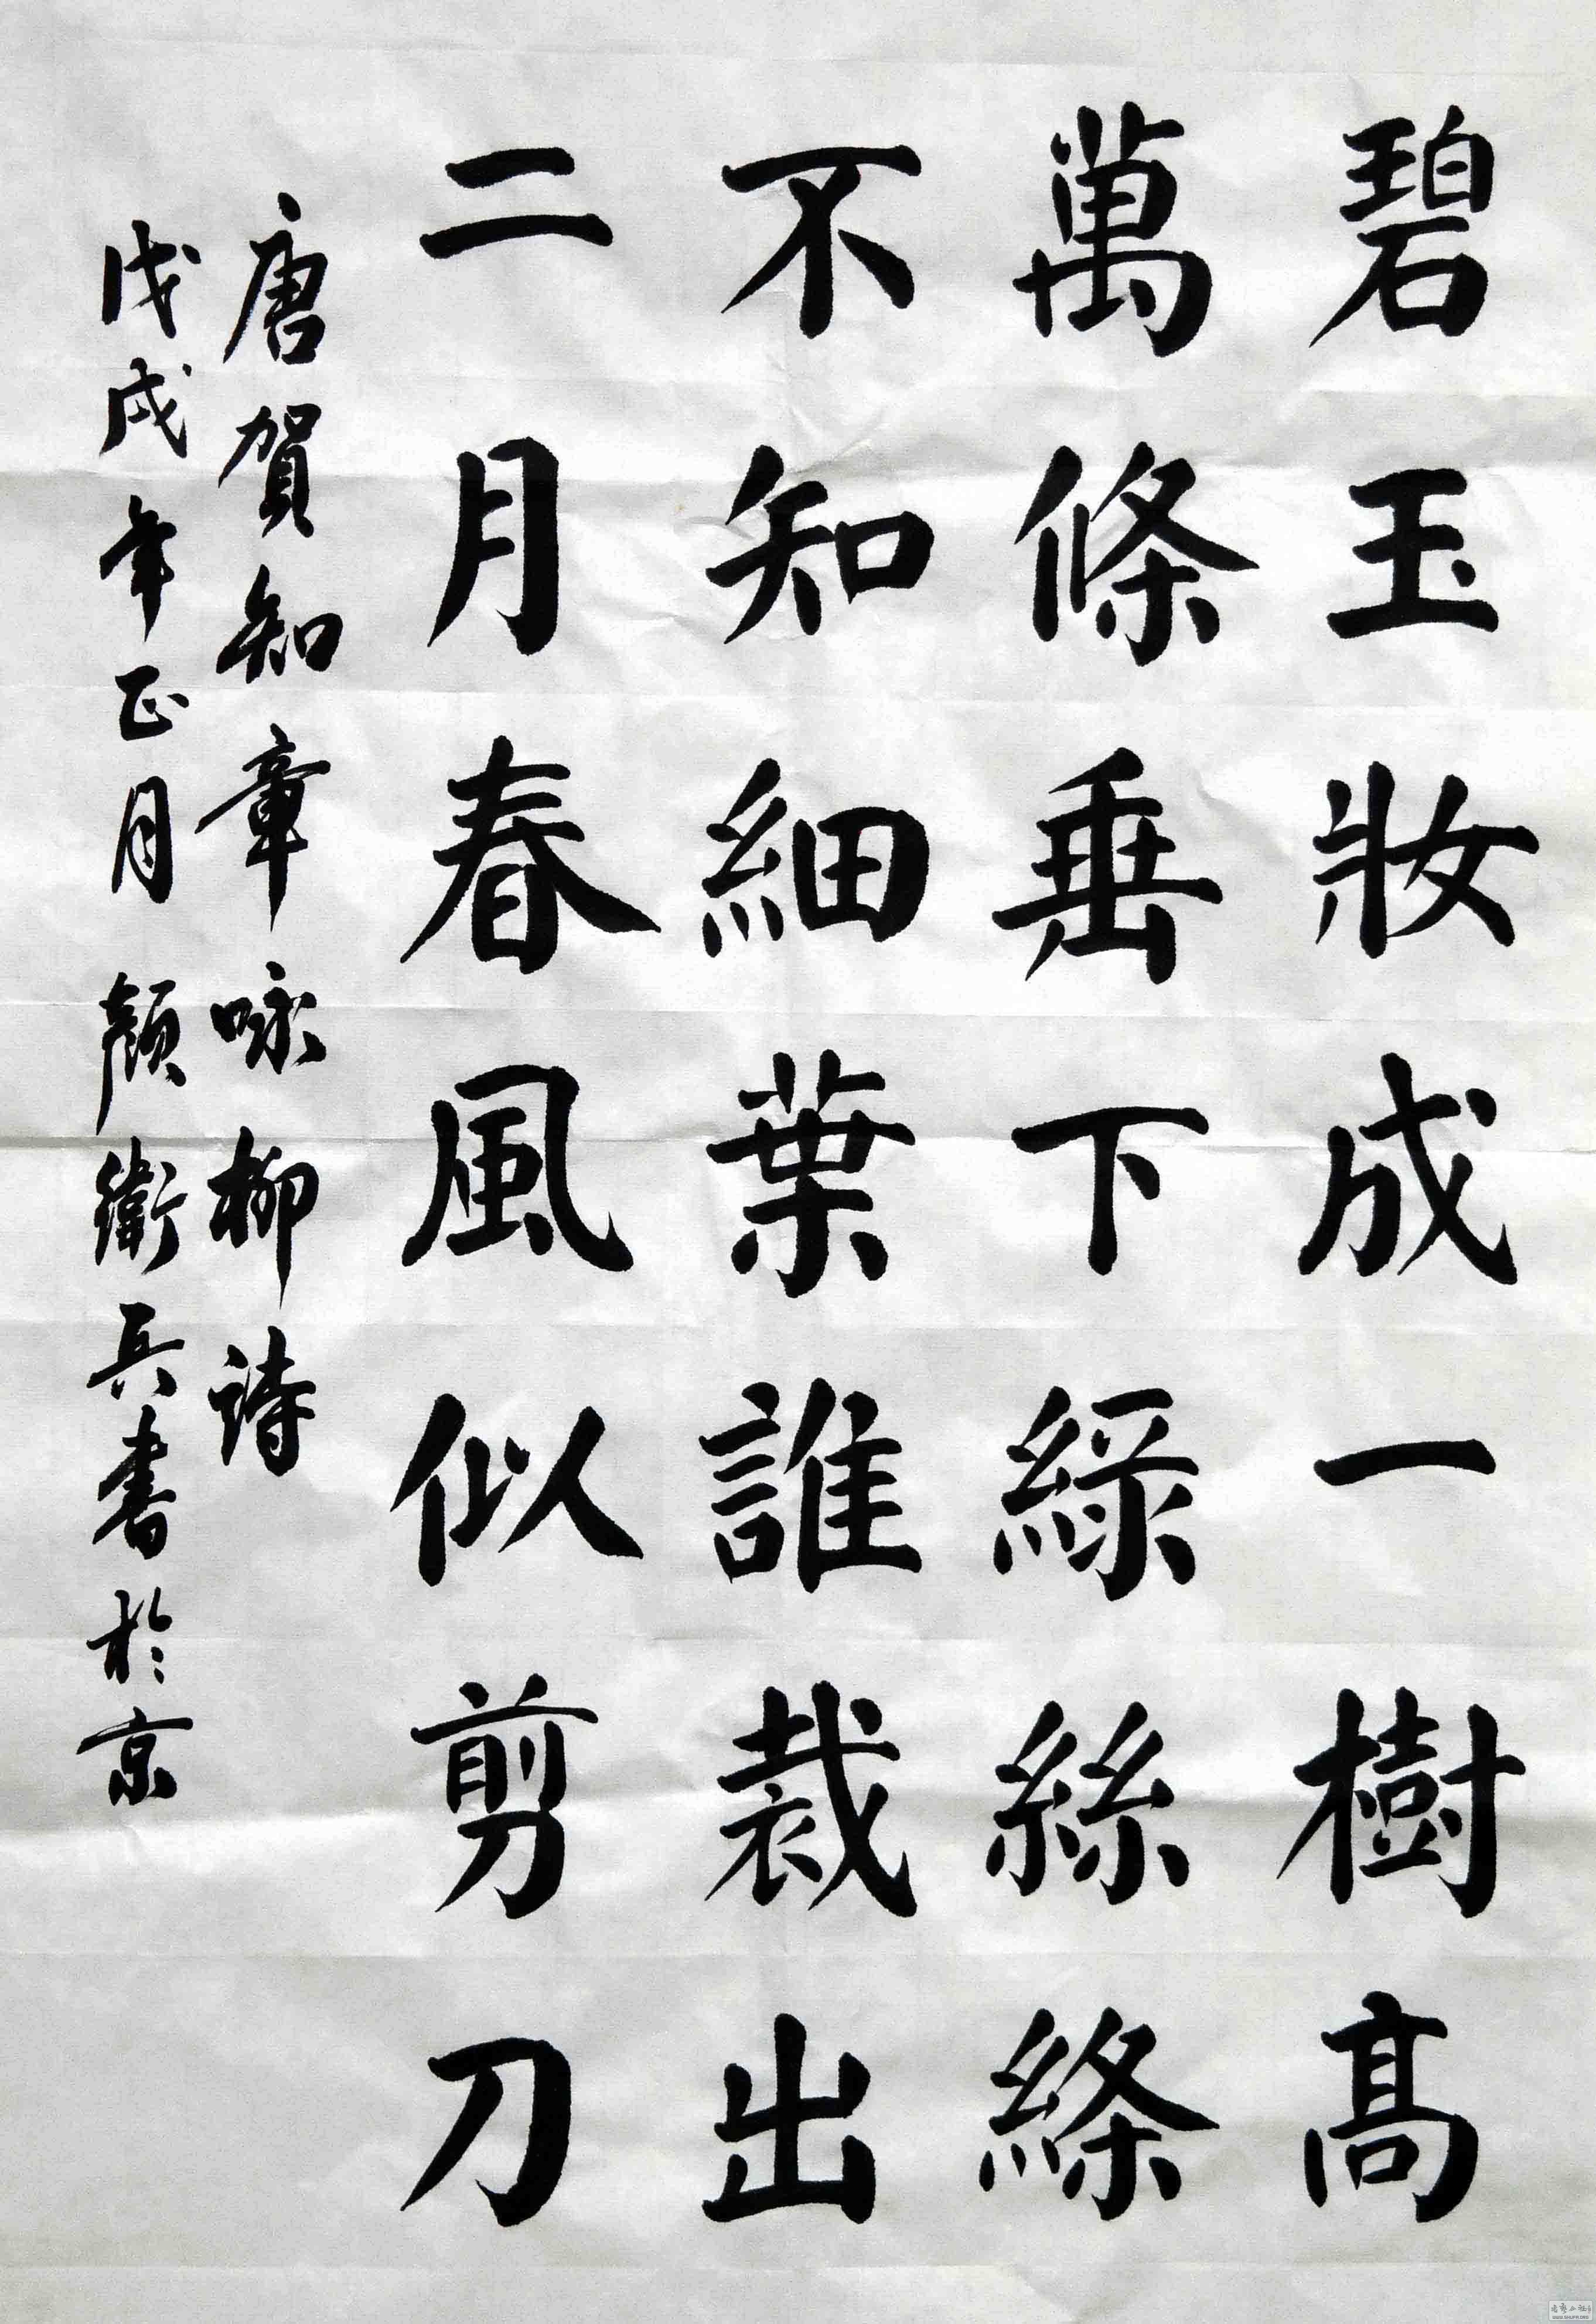 碧玉妝成一樹高
萬條垂下綠絲絛
不知細葉誰裁出
二月春風似剪刀
唐賀知章咏柳詩
戊戌年正月顏衛兵書於京